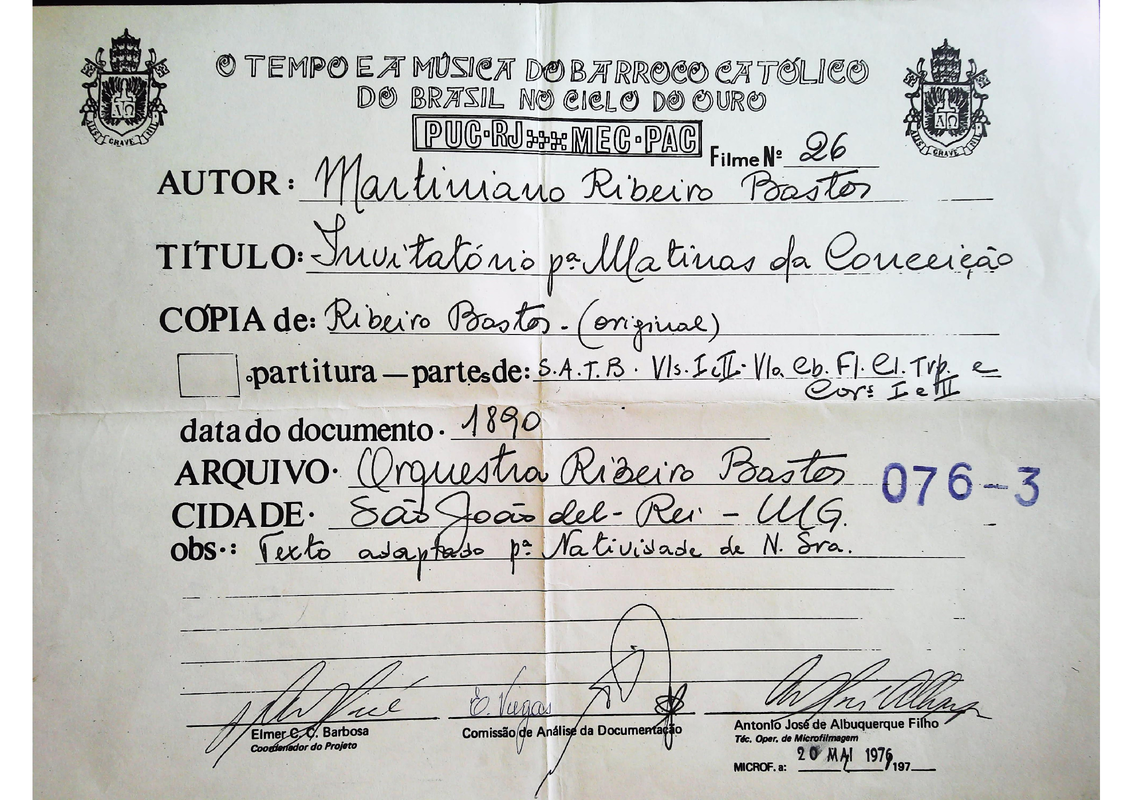 O TEMPO E A MÚSICA DO BARROCO CATÓLICO
DO BRASIL NO CICLO DO OURO
PUC·RJ MEC·PAC
Filme Nº 26
AUTOR: Martiniano Ribeiro Bastos
TÍTULO: Invitatório pª Matinas da Conceição
CÓPIA de: Ribeiro Bastos - (original)
partitura — partes de: S.A.T.B. Vls. I e II. Vla. Cb. Fl. Cl. Trp. e
Corˢ I e II
data do documento · 1890
ARQUIVO · Orquestra Ribeiro Bastos
076-3
CIDADE · São João del-Rei - MG.
obs·: Texto adaptado pª Natividade de N. Sra.
E. Viegas
Elmer C. C. Barbosa
Coordenador do Projeto
Comissão de Análise da Documentação
Antonio José de Albuquerque Filho
Téc. Oper. de Microfilmagem
MICROF. a: 20 MAI 1976 197